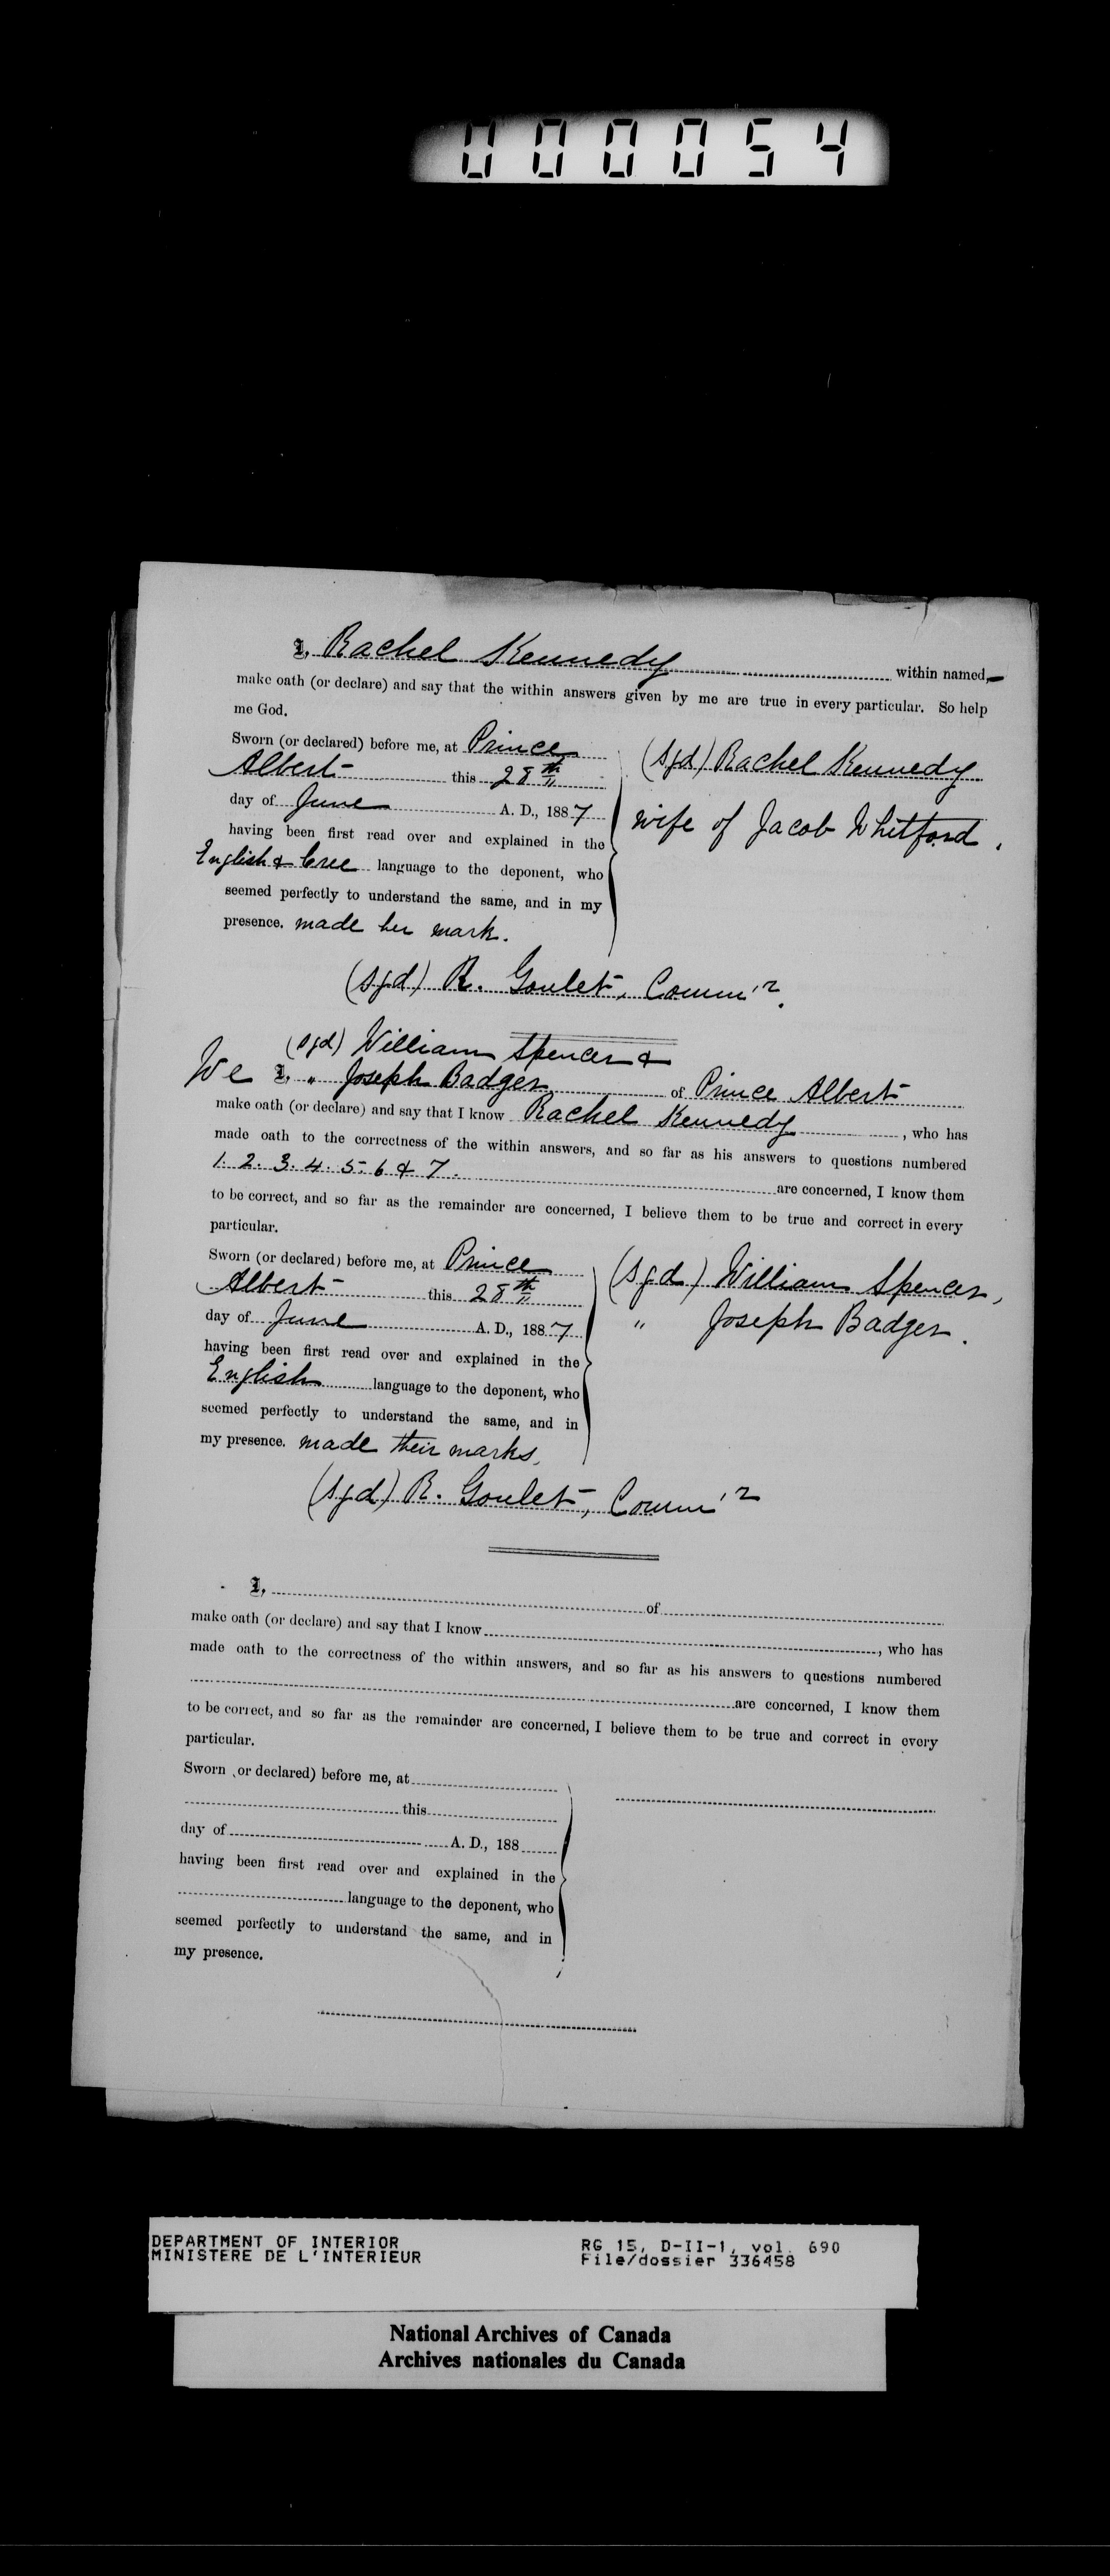 000054
I, Rachel Kennedy within named,
make oath (or declare) and say that the within answers given by me are true in every particular. So help
me God.
Sworn (or declared) before me, at Prince
Albert this 28th
day of June A. D., 1887
having been first read over and explained in the
English & Cree language to the deponent, who
seemed perfectly to understand the same, and in my
presence. made her mark.
(sgd) Rachel Kennedy
wife of Jacob Whitford.
(sgd) R. Goulet, Comm'r.
(sgd) William Spencer &
We I, " Joseph Badger of Prince Albert
make oath (or declare) and say that I know Rachel Kennedy, who has
made oath to the correctness of the within answers, and so far as his answers to questions numbered
1. 2. 3. 4. 5. 6 & 7. are concerned, I know them
to be correct, and so far as the remainder are concerned, I believe them to be true and correct in every
particular.
Sworn (or declared) before me, at Prince
Albert this 28th
day of June A. D., 1887
having been first read over and explained in the
English language to the deponent, who
seemed perfectly to understand the same, and in
my presence. made their marks.
(sgd) William Spencer,
" Joseph Badger.
(sgd) R. Goulet, Comm'r
I, of
make oath (or declare) and say that I know , who has
made oath to the correctness of the within answers, and so far as his answers to questions numbered
are concerned, I know them
to be correct, and so far as the remainder are concerned, I believe them to be true and correct in every
particular.
Sworn (or declared) before me, at
this
day of A. D., 188
having been first read over and explained in the
language to the deponent, who
seemed perfectly to understand the same, and in
my presence.
DEPARTMENT OF INTERIOR
MINISTERE DE L'INTERIEUR
RG 15, D-II-1, vol. 690
File/dossier 336458
National Archives of Canada
Archives nationales du Canada